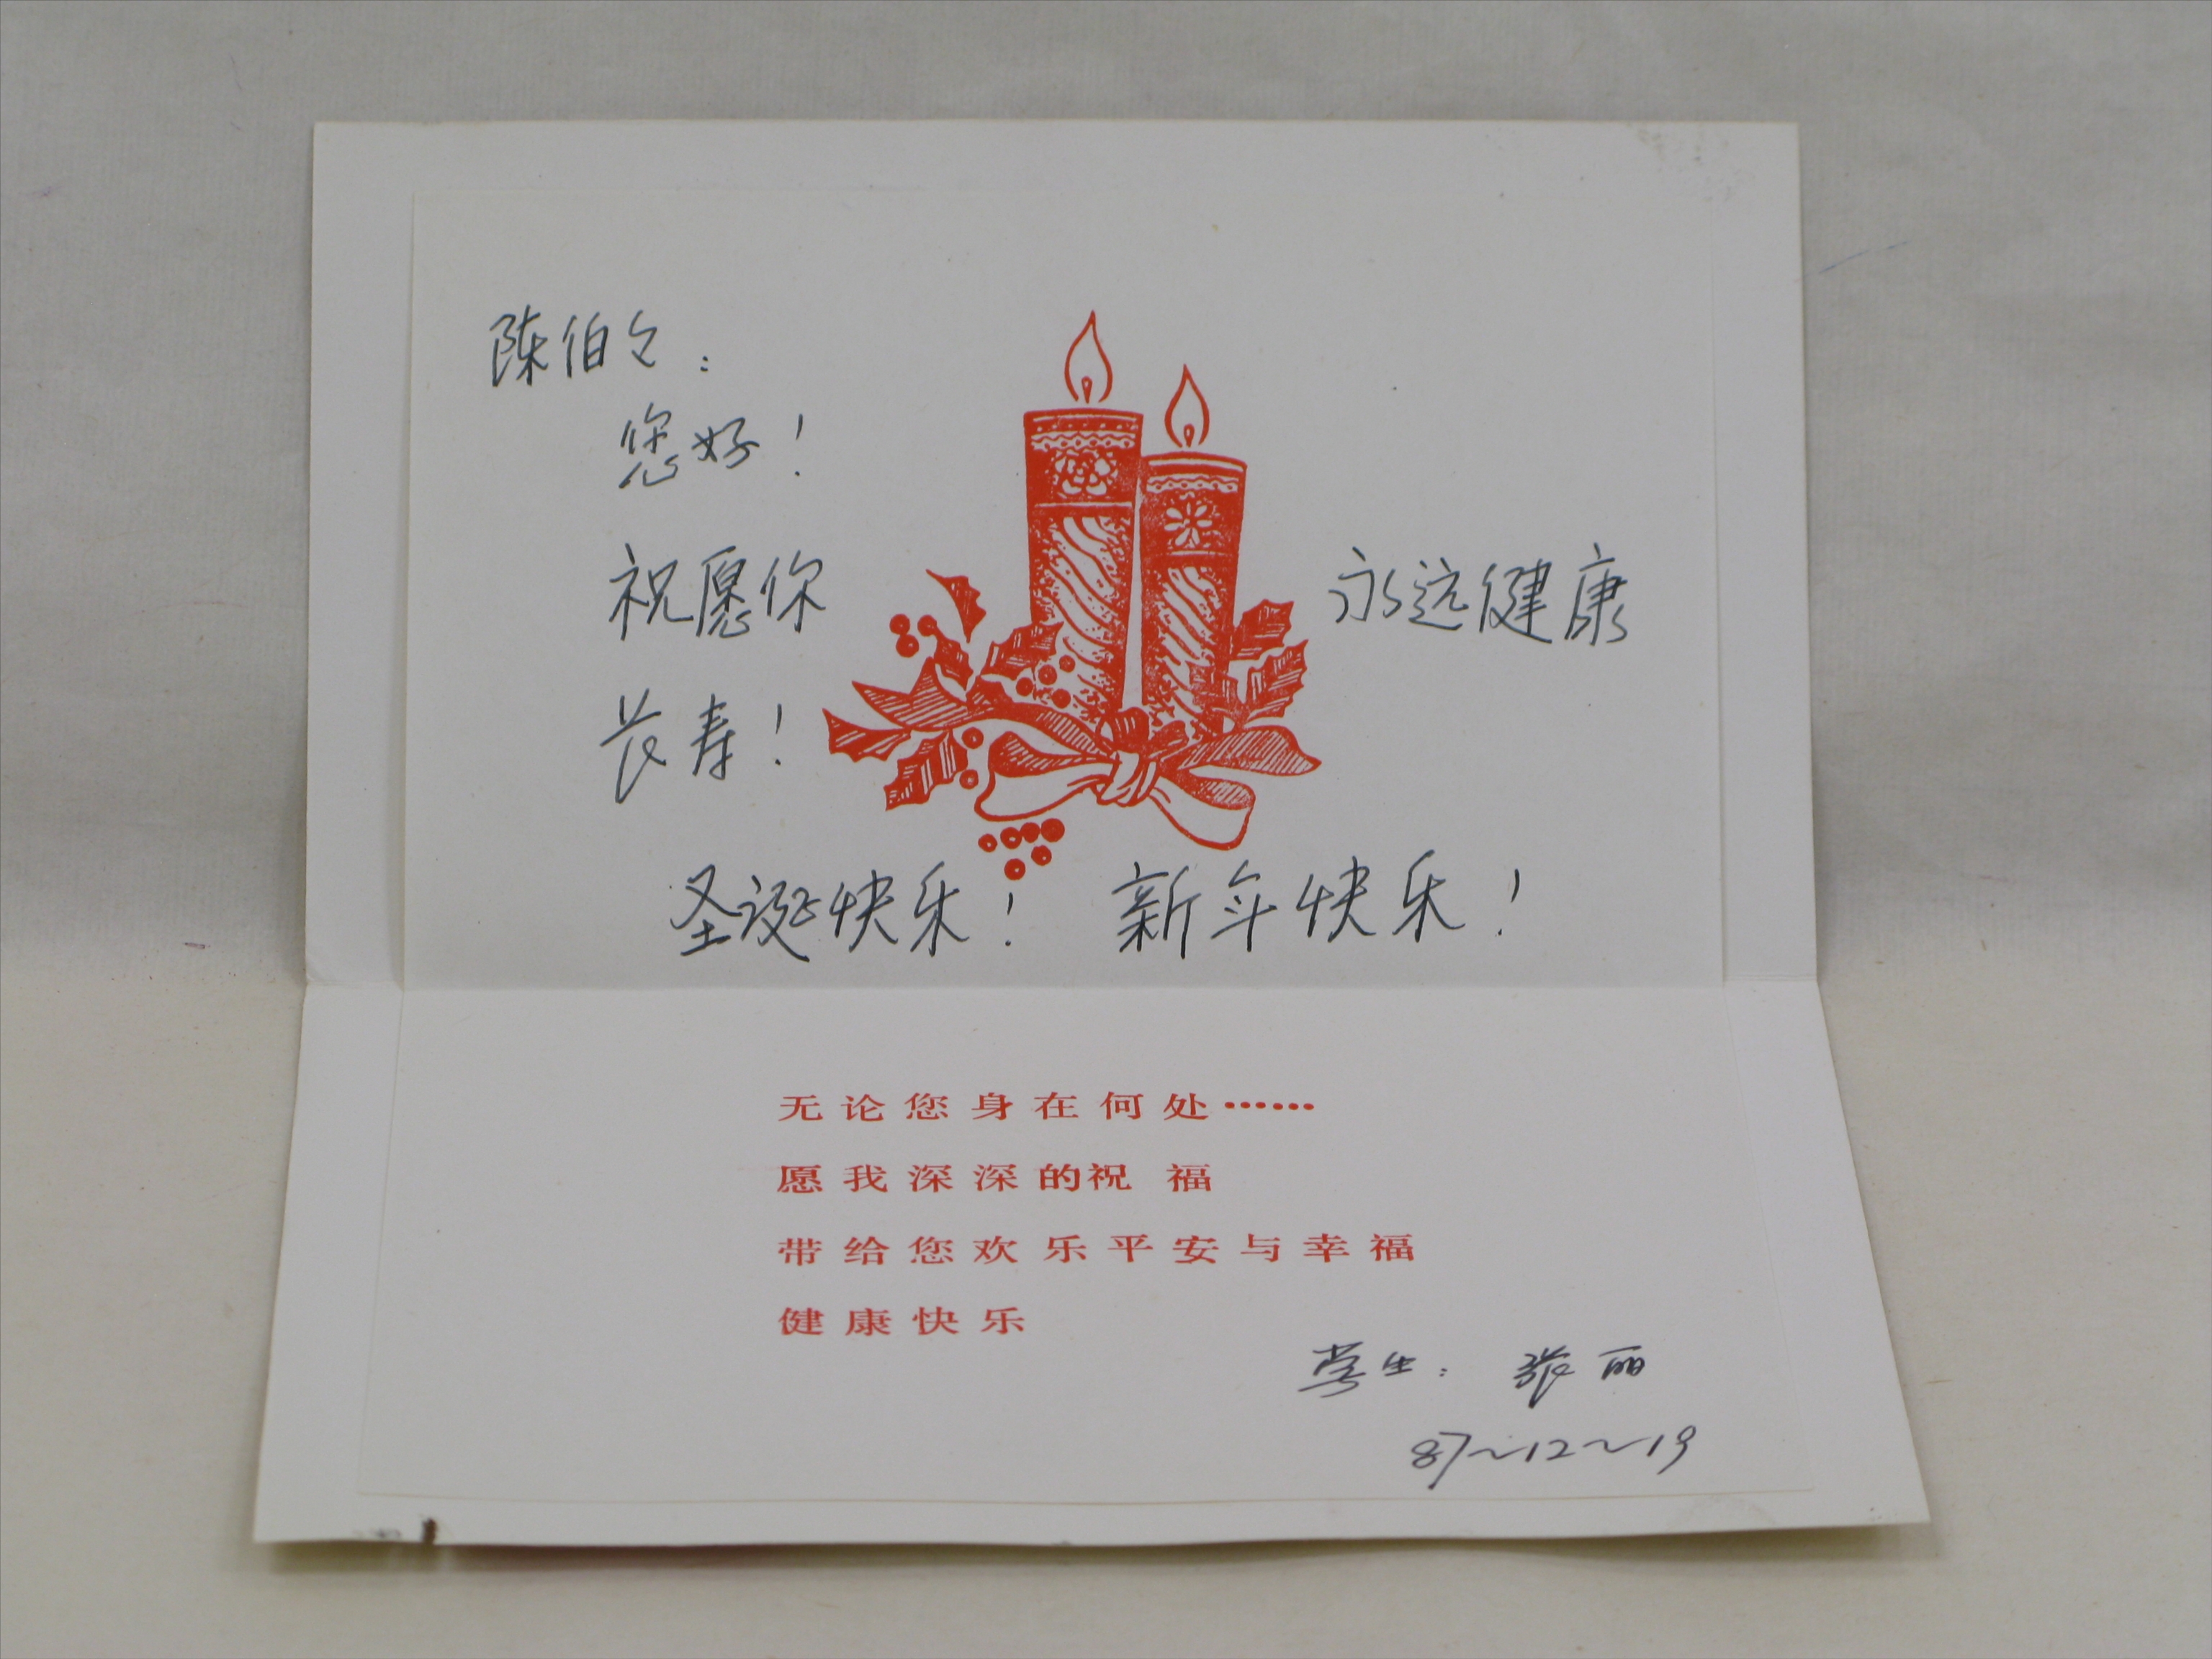 陈伯々：
您好！
祝愿你 永远健康
长寿！
圣诞快乐！ 新年快乐！
无论您身在何处……
愿我深深的祝福
带给您欢乐平安与幸福
健康快乐
学生：张丽
87~12~19